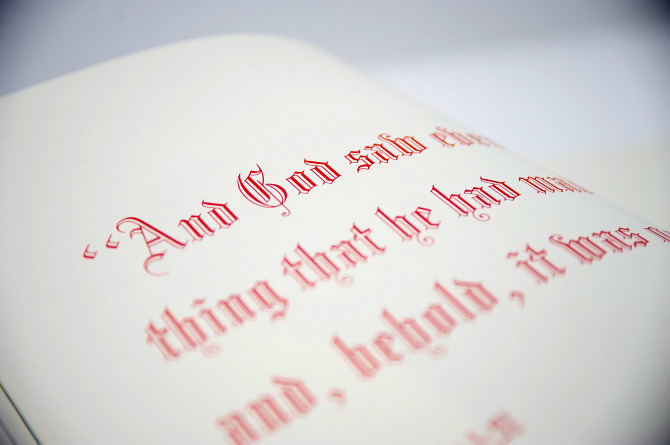 “And God saw ever
thing that he had ma
and, behold, it was